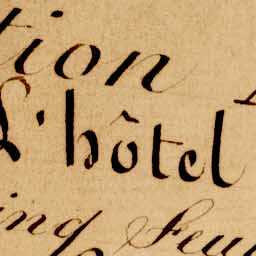 tion
L'hôtel
ing Feu